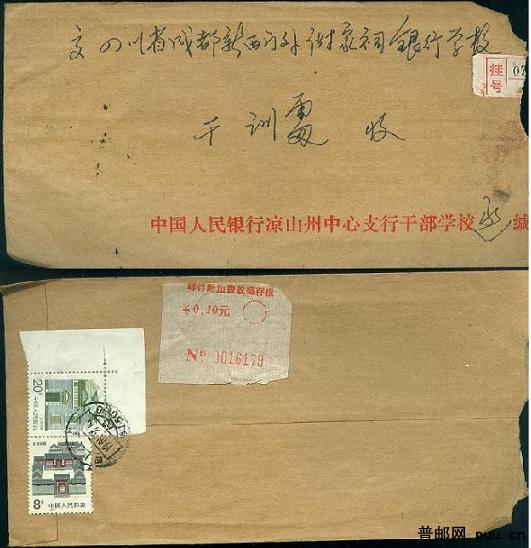 交四川省成都新西门外谢家祠银行学校
挂号 07
干训处 收
中国人民银行凉山州中心支行干部学校 缄
邮件附加费收据存根
¥0.10元
№ 0016179
20分
中国人民邮政
8分
中国人民邮政
普邮网 puu.cn